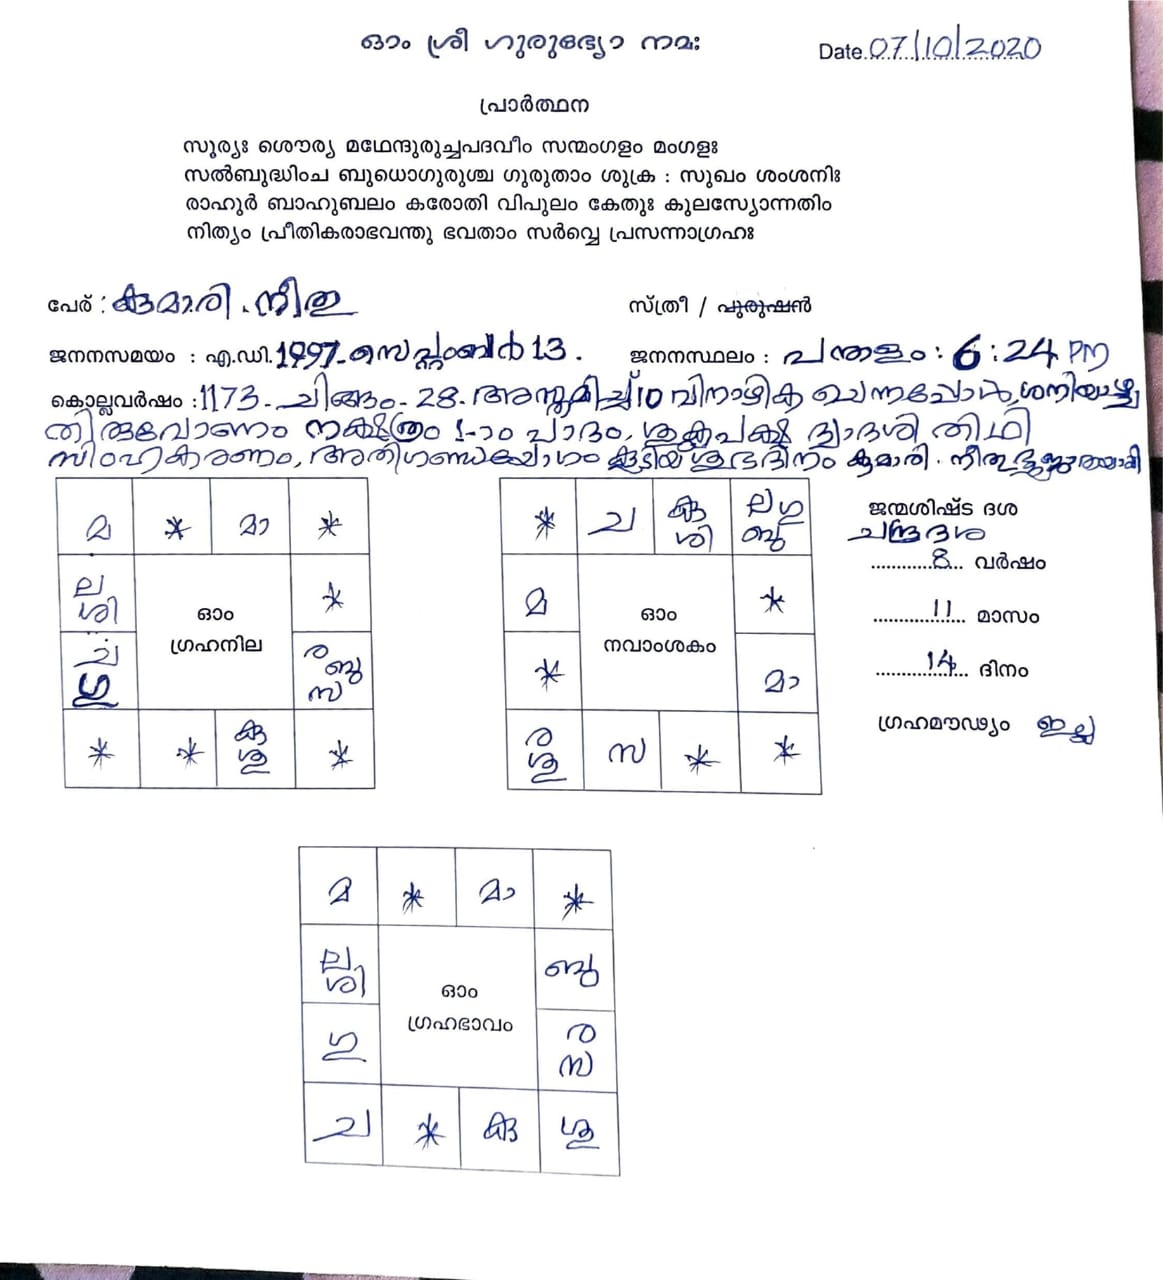 ഓം ശ്രീ ഗുരുഭ്യോ നമഃ
Date 07/10/2020
പ്രാർത്ഥന
സൂര്യഃ ശൌര്യ മഥേന്ദുരുച്ചപദവീം സന്മംഗളം മംഗളഃ
സൽബുദ്ധിംച ബുധൊഗുരുശ്ച ഗുരുതാം ശുക്ര : സുഖം ശംശനിഃ
രാഹുർ ബാഹുബലം കരോതി വിപുലം കേതുഃ കുലസ്യോന്നതിം
നിത്യം പ്രീതികരാഭവന്തു ഭവതാം സർവ്വെ പ്രസന്നാഗ്രഹഃ
പേര് : കുമാരി . നീതു
സ്ത്രീ / പുരുഷൻ
ജനനസമയം : എ.ഡി. 1997 - സെപ്റ്റംബർ 13 .
ജനനസ്ഥലം : പന്തളം : 6 : 24 PM
കൊല്ലവർഷം : 1173 - ചിങ്ങം - 28 . അസ്തമിച്ച് 10 വിനാഴിക ചെന്നപ്പോൾ, ശനിയാഴ്ച
തിരുവോണം നക്ഷത്രം 1-ാം പാദം, ശുക്ലപക്ഷ ദ്വാദശി തിഥി
സിംഹകരണം, അതിഗണ്ഡയോഗം കൂടിയ ശുഭദിനം കുമാരി . നീതു
മ * മാ *
ല ശി
*
ഓം
ഗ്രഹനില
ച ഗു
ര ബു സ
* * കു ശു *
* ച കു ശി ല ഗു ബു
മ
*
ഓം
നവാംശകം
*
മാ
ര ശു സ * *
ജന്മശിഷ്ട ദശ
ചന്ദ്രദശ
8 വർഷം
11 മാസം
14 ദിനം
ഗ്രഹമൗഢ്യം ഇല്ല
മ * മാ *
ല ശി
ബു
ഓം
ഗ്രഹഭാവം
ഗു
ര സ
ച * കു ശു